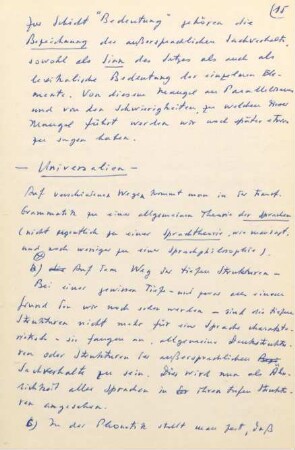 (15
Zur Schicht "Bedeutung" gehören die
Bezeichnung des außersprachlichen Sachverhalts,
sowohl als Sinn des Satzes als auch als
lexikalische Bedeutung der einzelnen Ele-
mente. Von diesem Mangel an Parallelismus
und von den Schwierigkeiten, zu welchen dieser
Mangel führt werden wir noch später etwas
zu sagen haben.
— Universalien —
Auf verschiedenen Wegen kommt man in der Transf.
Grammatik zu einer allgemeinen Theorie der Sprachen
(nicht eigentlich zu einer Sprachtheorie,
und noch weniger zu einer Sprachphilosophie).
a) Auf dem Weg der tiefen Strukturen —
Bei einer gewissen Tiefe – und zwar
wie wir noch sehen werden – sind die tiefen
Strukturen nicht mehr für eine Sprache charakte-
ristisch – sie fangen an, allgemeine Denkstruktu-
ren oder Strukturen der außersprachlichen
Sachverhalte zu sein. Dies wird nun als Ähn-
lichkeit aller Sprachen in ihren tiefen Struktu-
ren angesehen.
b) In der Phonetik stellt man fest, daß